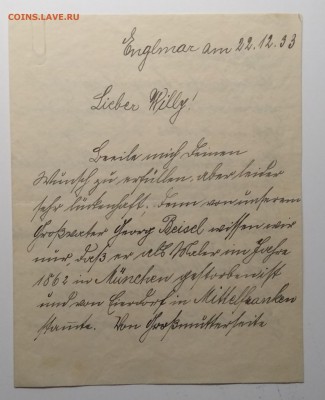 COINS.LAVE.RU
Englmar am 22.12.33
Lieber Willy!
Beeile mich Deinen
Wunsch zu erfüllen, aber leider
sehr lückenhaft. Denn von unserem
Großvater Georg Beisel wissen wir
nur, daß er als Maler im Jahre
1862 in München gestorben ist
und von in Mittelfranken
stamte. Von Großmutterseite